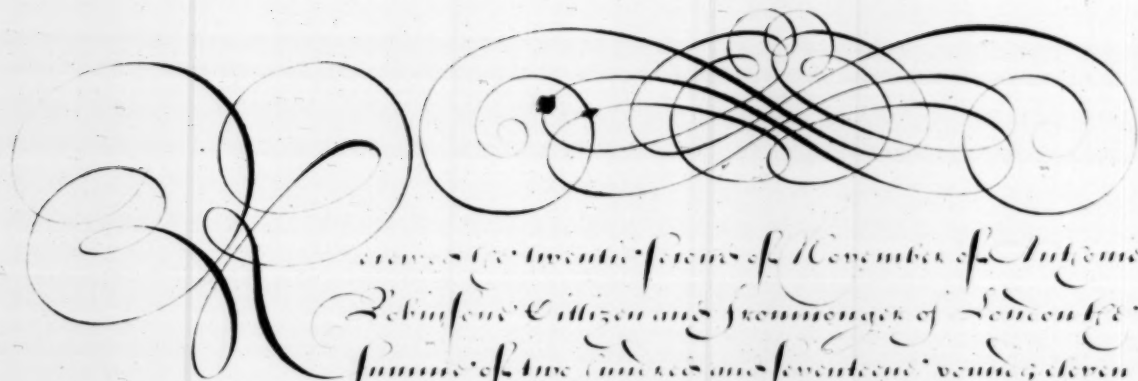 Receved the twentie second of November of Anthonie
Robinsone Cittizen and Ironmonger of London the
summe of two hundred and seventeene pounds eleven